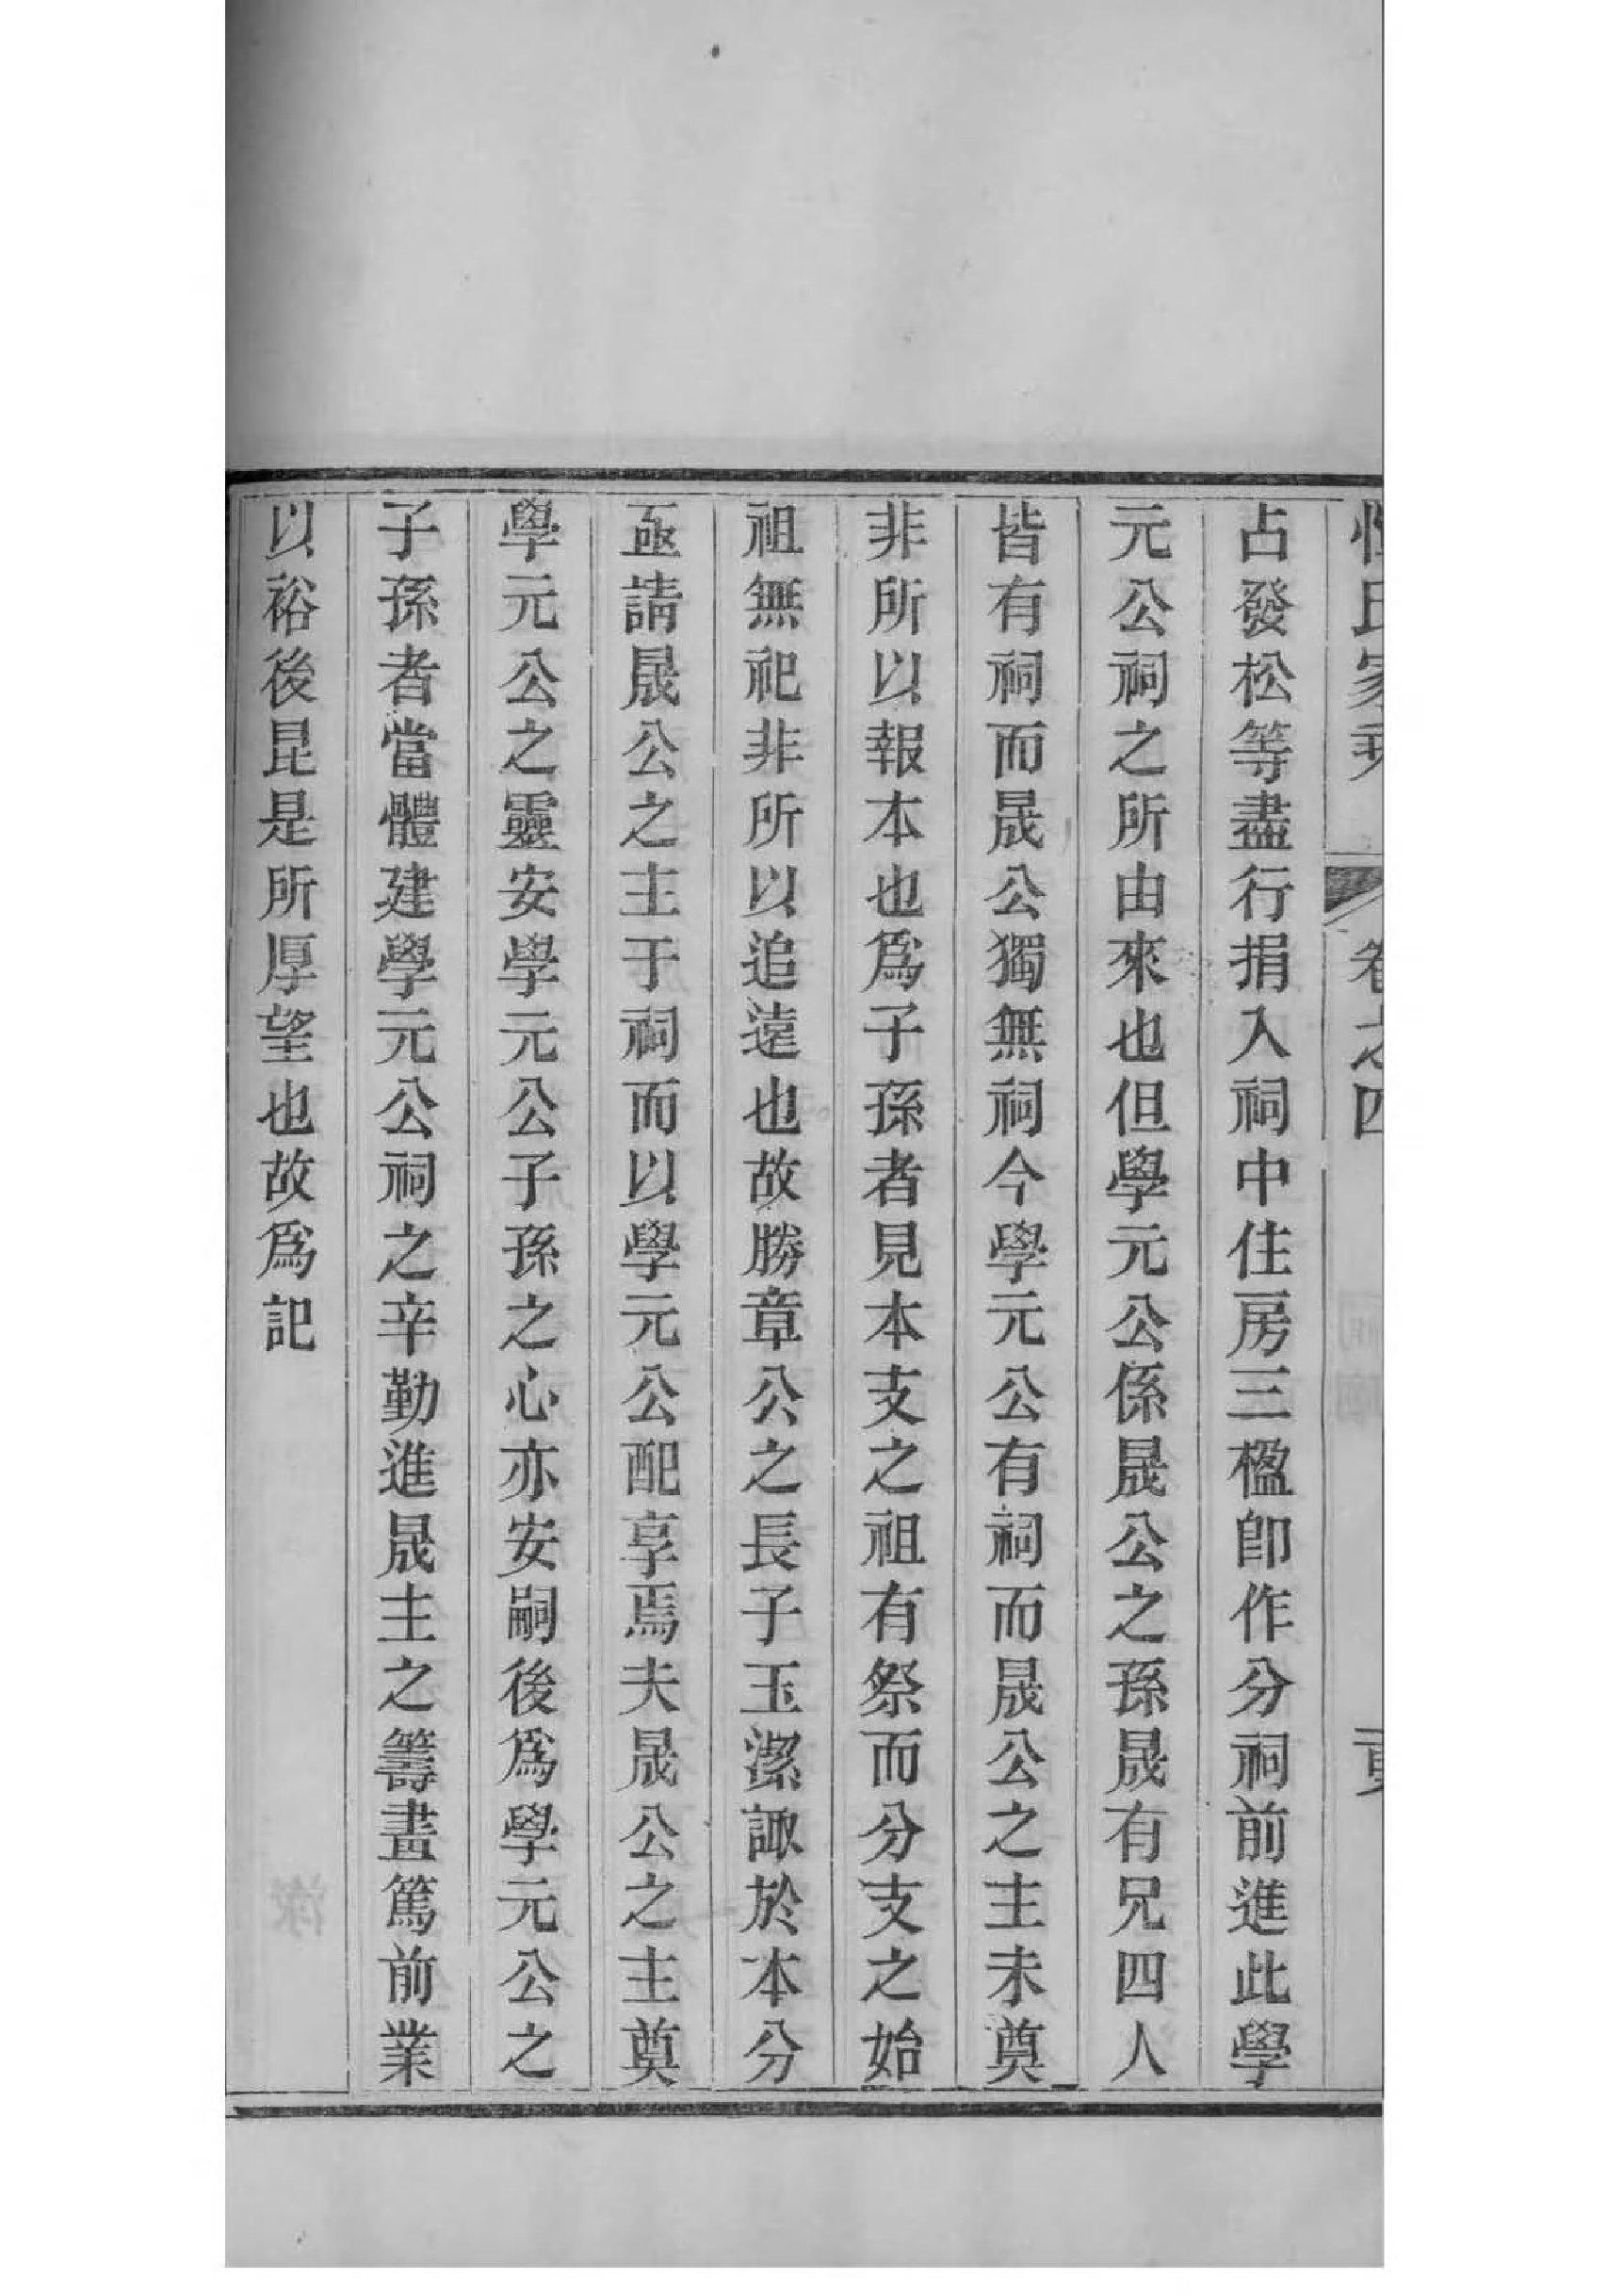 惲氏家乘 卷之四
占發松等盡行捐入祠中住房三楹卽作分祠前進此學
元公祠之所由來也但學元公係晟公之孫晟有兄四人
皆有祠而晟公獨無祠今學元公有祠而晟公之主未奠
非所以報本也爲子孫者見本支之祖有祭而分支之始
祖無祀非所以追遠也故勝章公之長子玉潔諏於本分
亟請晟公之主于祠而以學元公配享焉夫晟公之主奠
學元公之靈安學元公子孫之心亦安嗣後爲學元公之
子孫者當體建學元公祠之辛勤進晟主之籌畫篤前業
以裕後昆是所厚望也故爲記